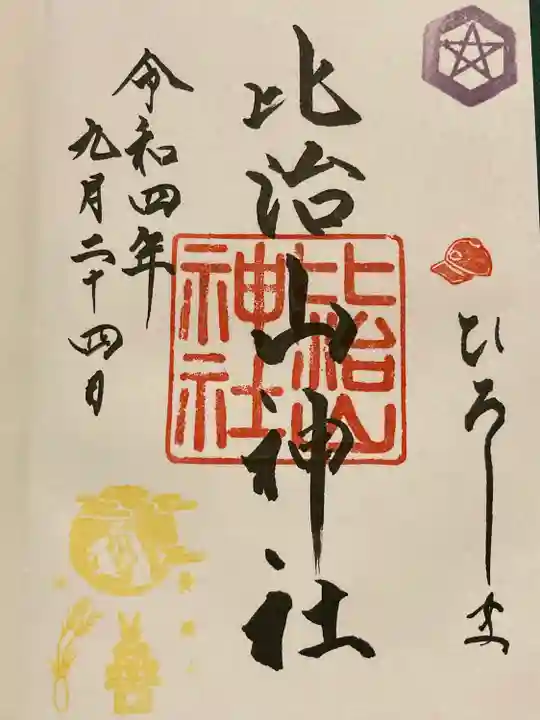 ひろしま
比治山神社
比治山
神社
令和四年
九月二十四日